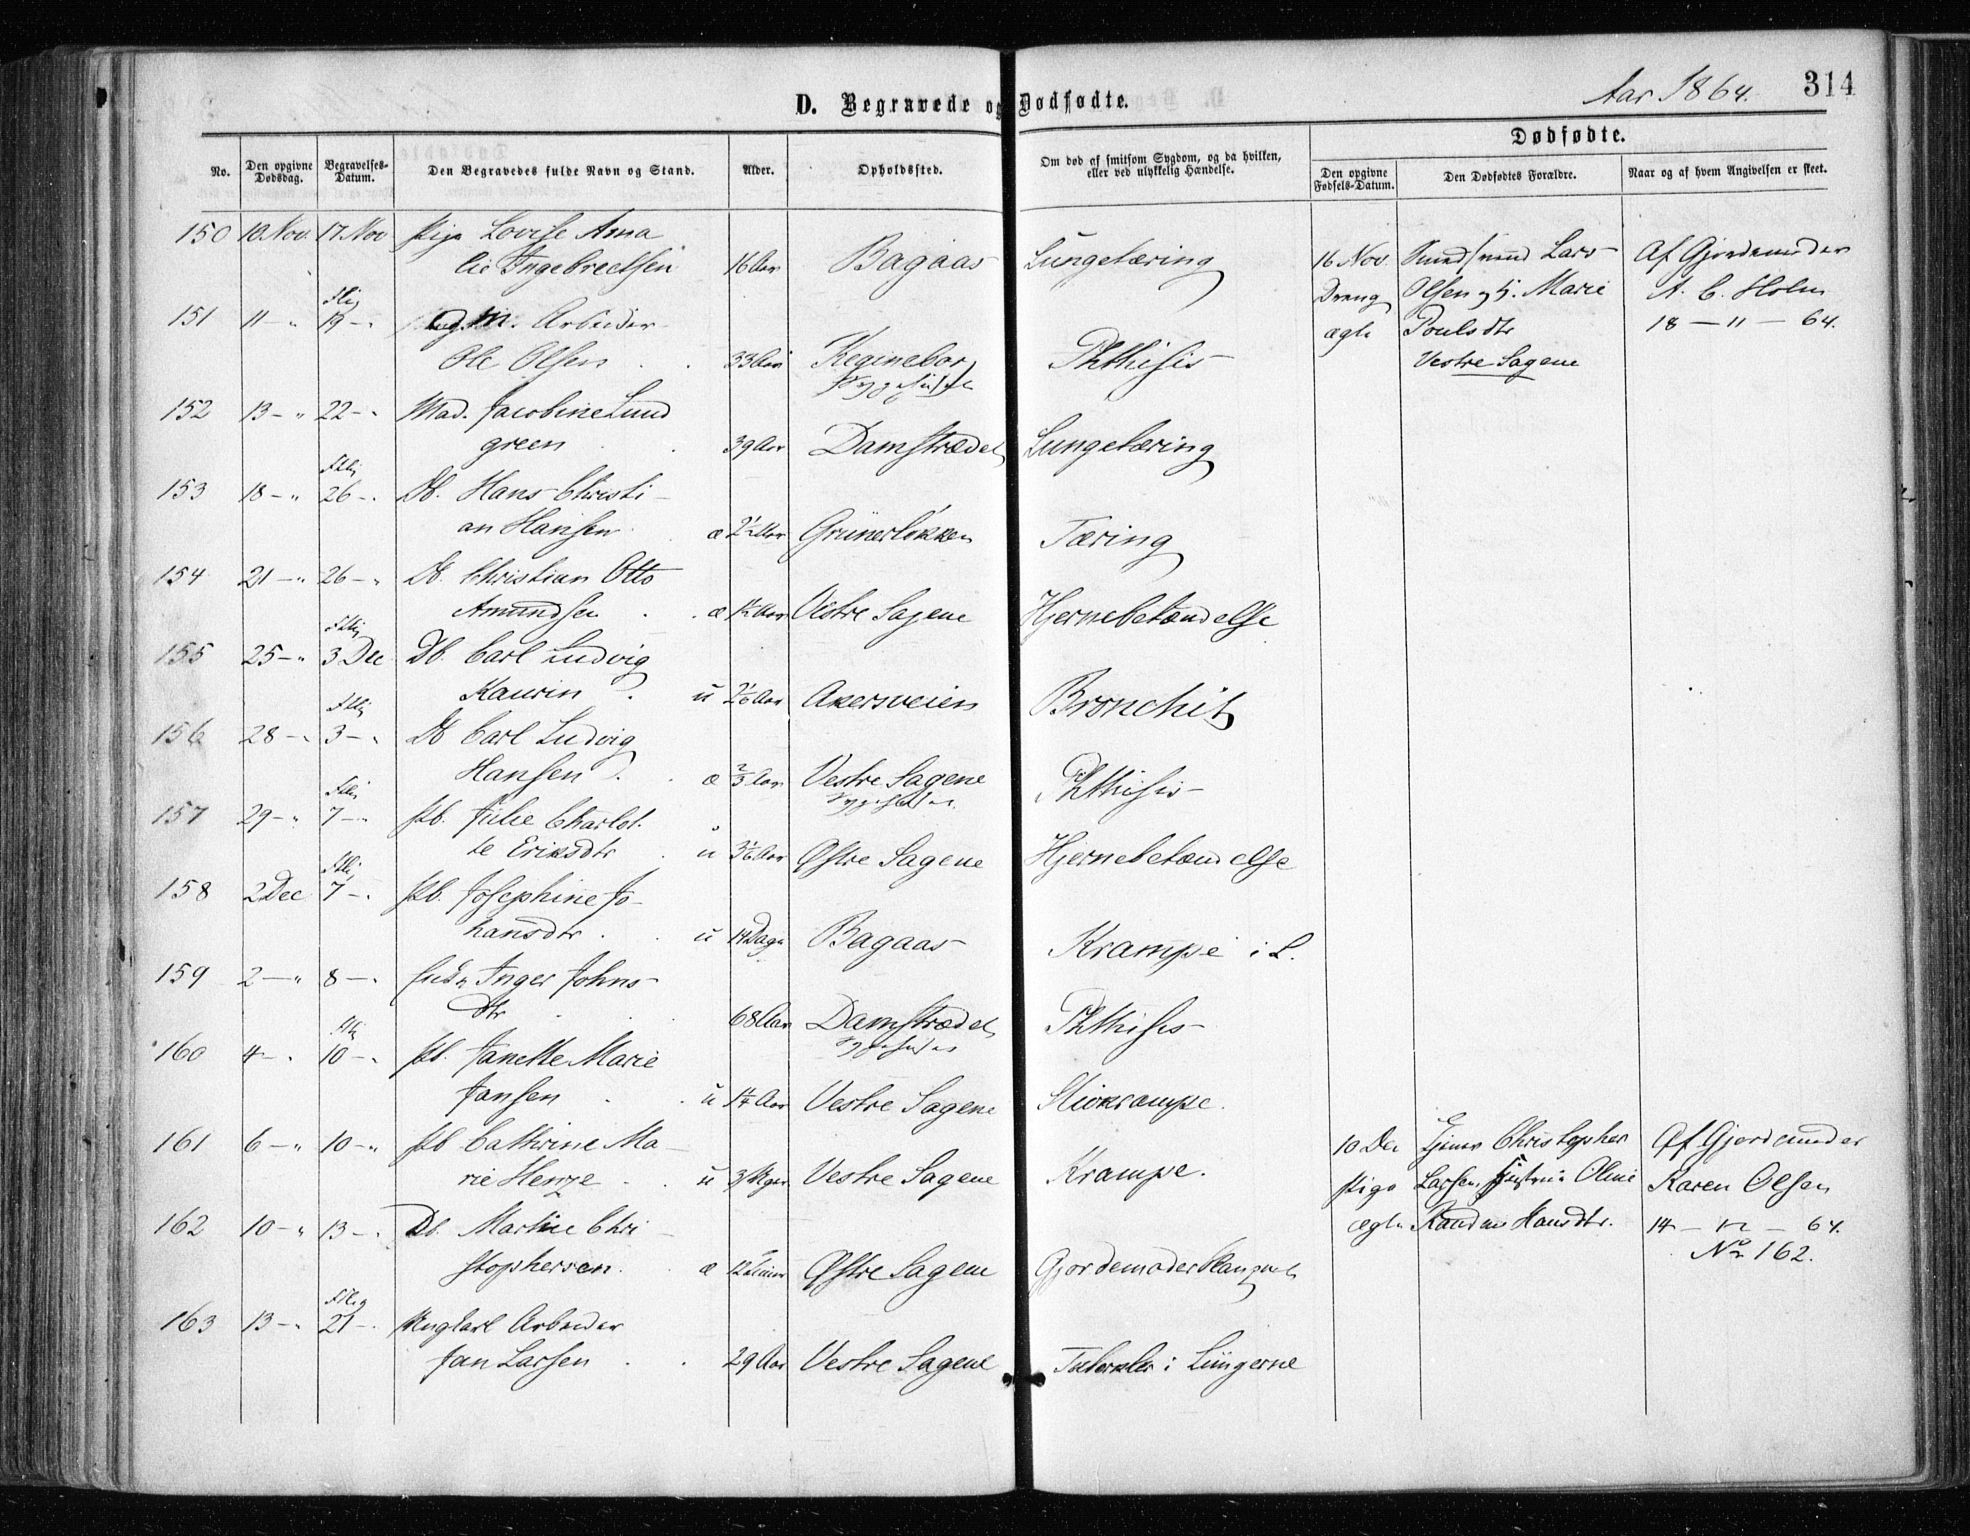 Aar 1864.
314
D. Begravede og Dødfødte.
Dødfødte.
No.
Den opgivne Dødsdag.
Begravelses-Datum.
Den Begravedes fulde Navn og Stand.
Alder.
Opholdssted.
Om død af smitsom Sygdom, og da hvilken, eller ved ulykkelig Hændelse.
Den opgivne Fødsels-Datum.
Den Dødfødtes Forældre.
Naar og af hvem Angivelsen er skeet.
150 10 Nov. 17 Nov Pige Lovise Ama
lie Ingebrectsen 16 Aar Bagaas Lungetæring
16 Nov Lars Af Gjordemoder
Dreng Olsen og H. Marie A. C. Holm
ægte Poulsdtr 18 – 11 – 64.
Vestre Sagene
151 11 – " 19 – " m. Arbeider
Ole Olsen 33 Aar Phthisis
152 13 – " 22 – " Mad. Jacobine Lund
green 39 Aar Damstrædet Lungetæring
153 18 – " 26 – " Db. Hans Christi
an Hansen æ 2½ Aar Grünerløkken Tæring
154 21 – " 26 – " Db. Christian Otto
Amundsen æ 1½ Aar Vestre Sagene Hjernebetændelse
155 25 – " 3 Dec Db. Carl Ludvig
Kaurin u 2 1/6 Aar Akersveien Bronchit
156 28 – " 3 – " Db Carl Ludvig
Hansen æ 2/3 Aar Vestre Sagene Phthisis
157 29 – " 7 – " Pb. Julie Charlot
te Eriksdtr u 3 1/6 Aar Østre Sagene Hjernebetændelse
158 2 Dec 7 – " Pb. Josephine Jo
hansdtr u 14 Dage Bagaas Krampe i L.
159 2 – " 8 – " Inger Johns
dtr 68 Aar Damstrædet Phthisis
160 4 – " 10 – " Pb. Janette Marie
Jansen u 1¼ Aar Vestre Sagene Stivkrampe.
161 6 – " 10 – " Pb Cathrine Ma
rie Henze u 3 Uger Vestre Sagene Krampe.
10 Dec Christopher Af Gjordemoder
Pige Larsen Hustru Oline Karen Olsen
ægte Hansdtr. 14 – 12 – 64.
No 162.
162 10 – " 13 – " Db. Martin Chri
stophersen æ 12 Timer Østre Sagene
163 13 – " 21 – " Ungkarl Arbeider
Jan Larsen 29 Aar Vestre Sagene Tuberkler i Lungerne